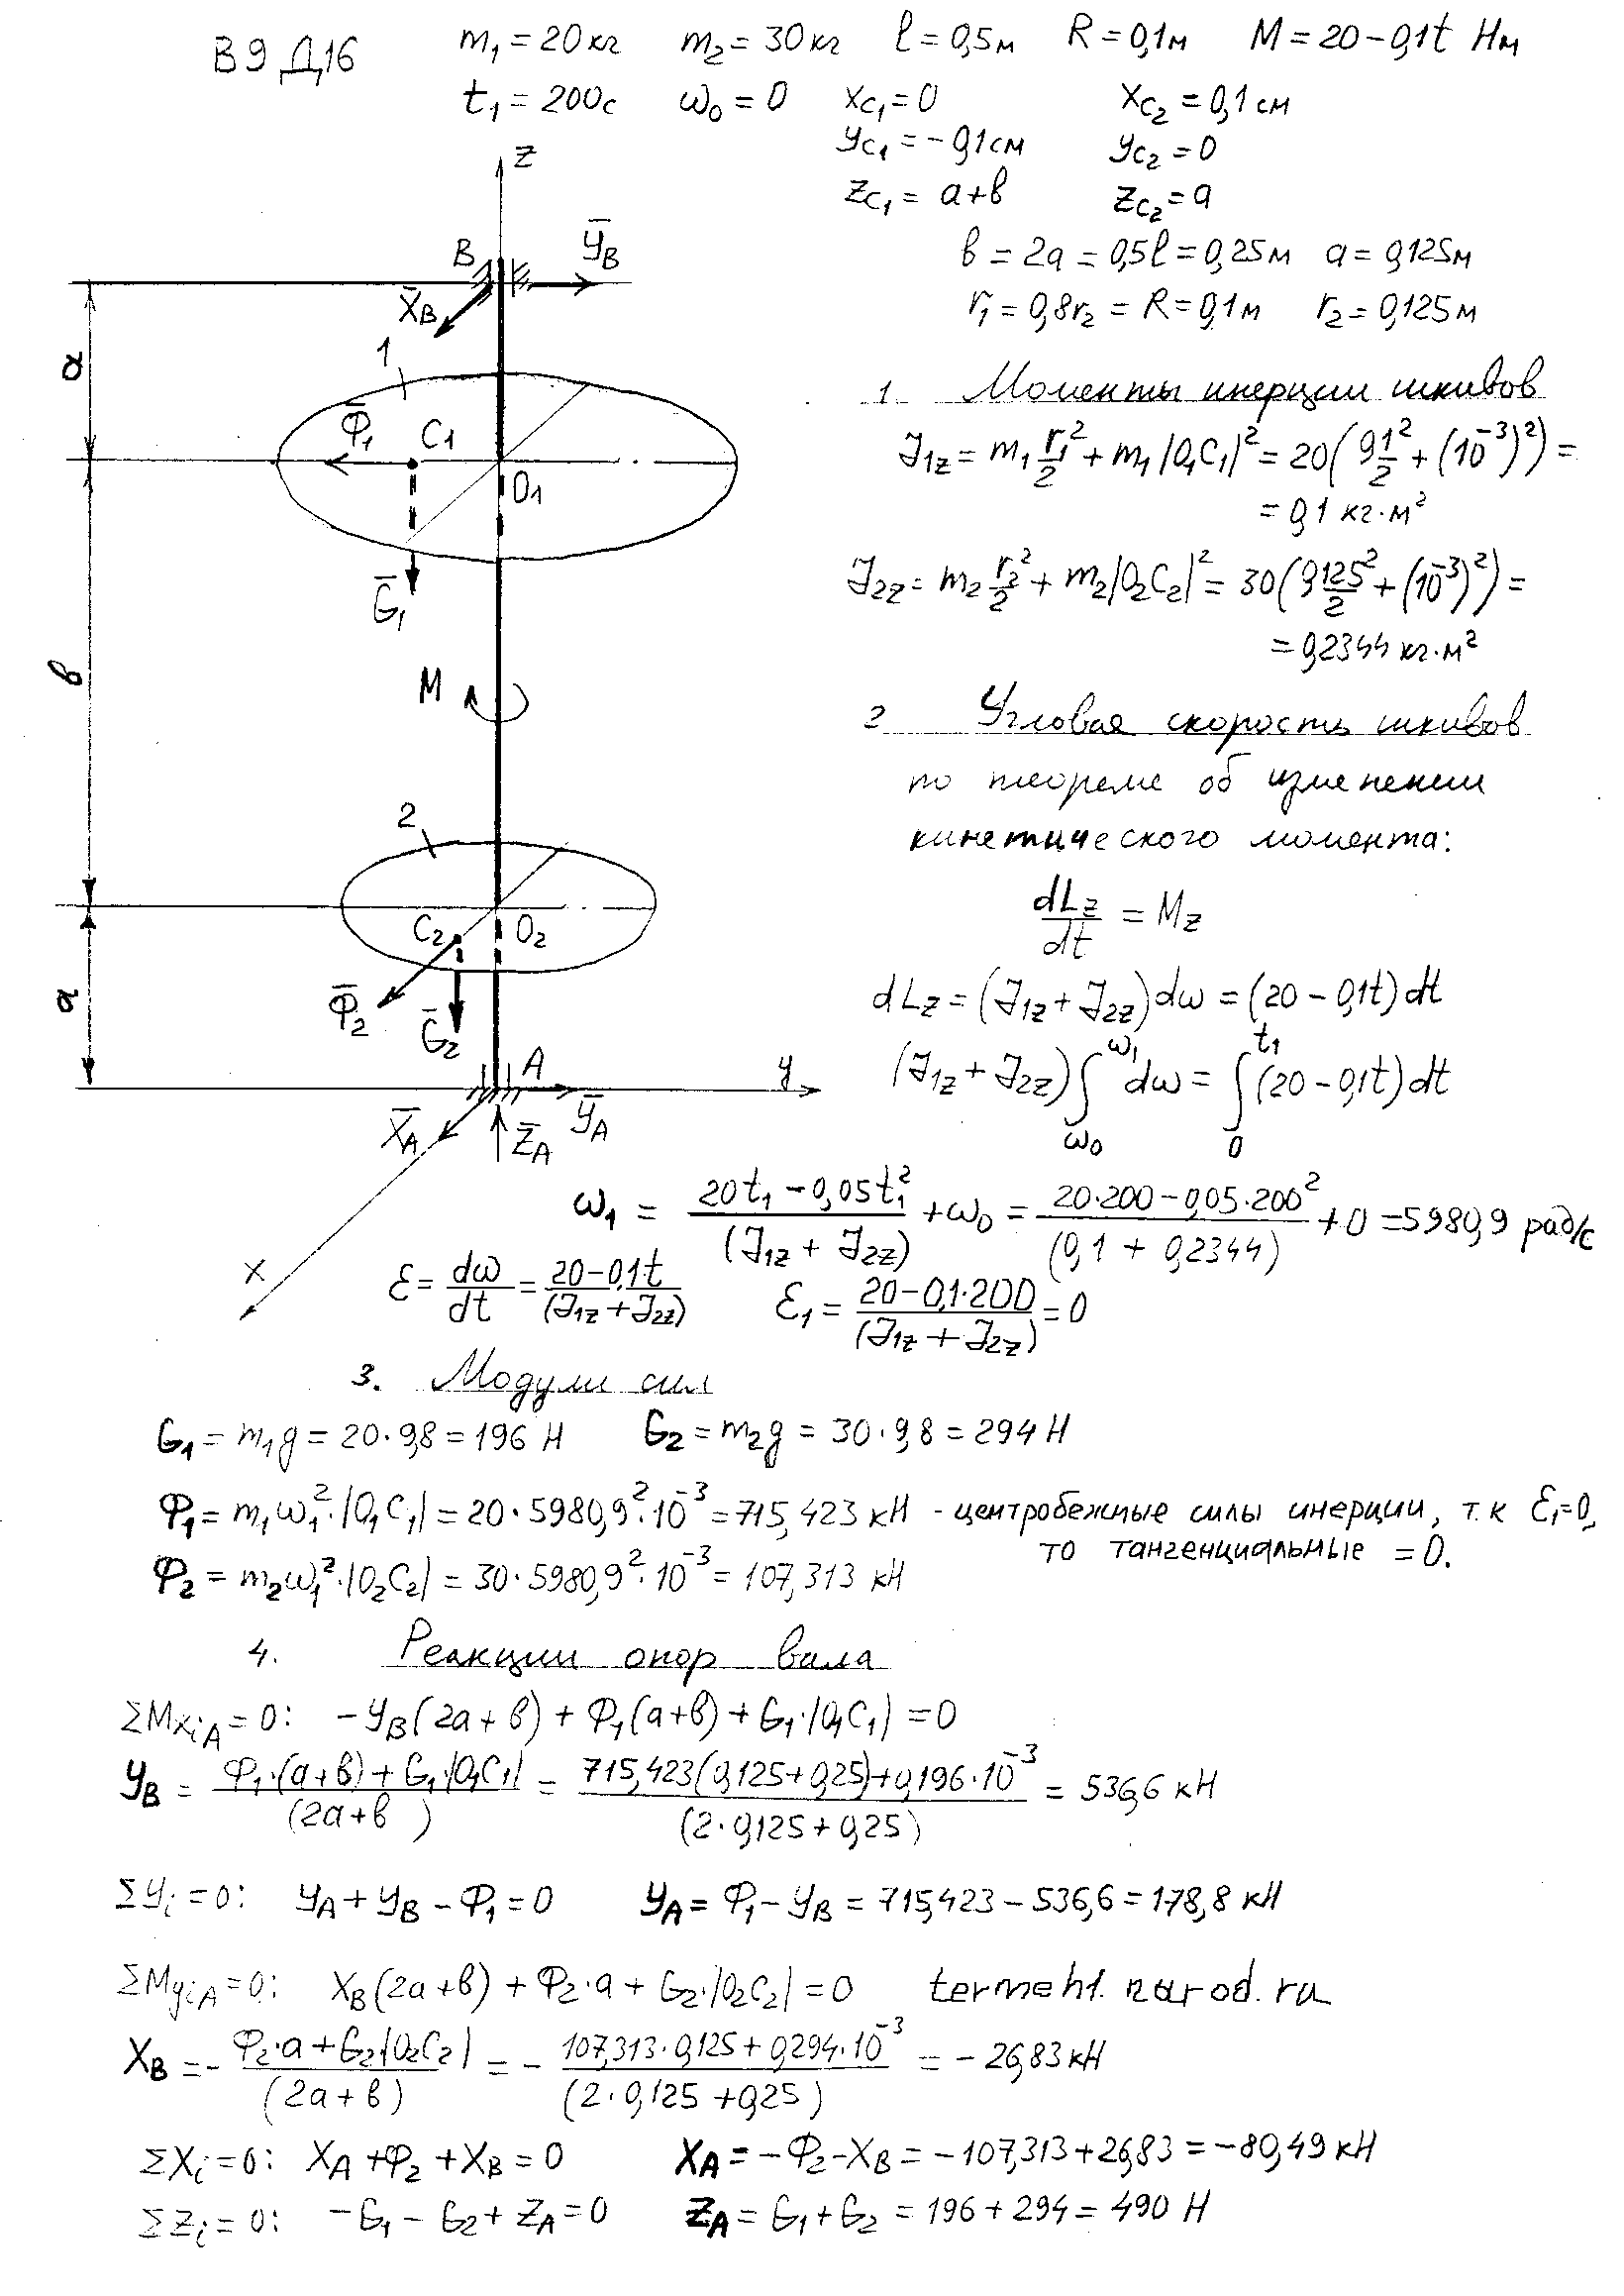 В9 Д16 m₁ = 20 кг m₂ = 30 кг l = 0,5 м R = 0,1 м M = 20 − 0,1t Нм
t₁ = 200 с ω₀ = 0 x_C₁ = 0 x_C₂ = 0,1 см
y_C₁ = −0,1 см y_C₂ = 0
z_C₁ = a+b z_C₂ = a
b = 2a = 0,5l = 0,25 м a = 0,125 м
r₁ = 0,8r₂ = R = 0,1 м r₂ = 0,125 м
z
B Y̅_B
X̅_B
a
1
Φ̅₁ C₁
O₁
G̅₁
b
M
2
C₂ O₂
Φ̅₂
G̅₂
a
A y
X̅_A Z̅_A Y̅_A
x
1. Моменты инерции шкивов
J₁z = m₁ r₁²/2 + m₁|O₁C₁|² = 20(0,1²/2 + (10⁻³)²) =
= 0,1 кг·м²
J₂z = m₂ r₂²/2 + m₂|O₂C₂|² = 30(0,125²/2 + (10⁻³)²) =
= 0,2344 кг·м²
2 Угловая скорость шкивов
по теореме об изменении
кинетического момента:
dLz/dt = Mz
dLz = (J₁z + J₂z)dω = (20 − 0,1t)dt
(J₁z + J₂z)∫_ω₀^ω₁ dω = ∫_0^t₁ (20 − 0,1t)dt
ω₁ = (20t₁ − 0,05t₁²)/(J₁z + J₂z) + ω₀ = (20·200 − 0,05·200²)/(0,1 + 0,2344) + 0 = 5980,9 рад/с
ε = dω/dt = (20 − 0,1t)/(J₁z + J₂z) ε₁ = (20 − 0,1·200)/(J₁z + J₂z) = 0
3. Модули сил
G₁ = m₁g = 20·9,8 = 196 Н G₂ = m₂g = 30·9,8 = 294 Н
Φ₁ = m₁ω₁²·|O₁C₁| = 20·5980,9²·10⁻³ = 715,423 кН - центробежные силы инерции, т.к ε₁=0,
то тангенциальные = 0.
Φ₂ = m₂ω₁²·|O₂C₂| = 30·5980,9²·10⁻³ = 107,313 кН
4. Реакции опор вала
ΣM_XiA = 0: −Y_B(2a + b) + Φ₁(a+b) + G₁·|O₁C₁| = 0
Y_B = (Φ₁·(a+b) + G₁·|O₁C₁|)/(2a+b) = (715,423(0,125+0,25)+0,196·10⁻³)/(2·0,125+0,25) = 536,6 кН
ΣYi = 0: Y_A + Y_B − Φ₁ = 0 Y_A = Φ₁ − Y_B = 715,423 − 536,6 = 178,8 кН
ΣM_yiA = 0: X_B(2a+b) + Φ₂·a + G₂·|O₂C₂| = 0 termeh1.narod.ru
X_B = − (Φ₂·a + G₂|O₂C₂|)/(2a+b) = − (107,313·0,125 + 0,294·10⁻³)/(2·0,125 + 0,25) = − 26,83 кН
ΣXi = 0: X_A + Φ₂ + X_B = 0 X_A = −Φ₂ − X_B = −107,313 + 26,83 = −80,49 кН
ΣZi = 0: −G₁ − G₂ + Z_A = 0 Z_A = G₁ + G₂ = 196 + 294 = 490 Н